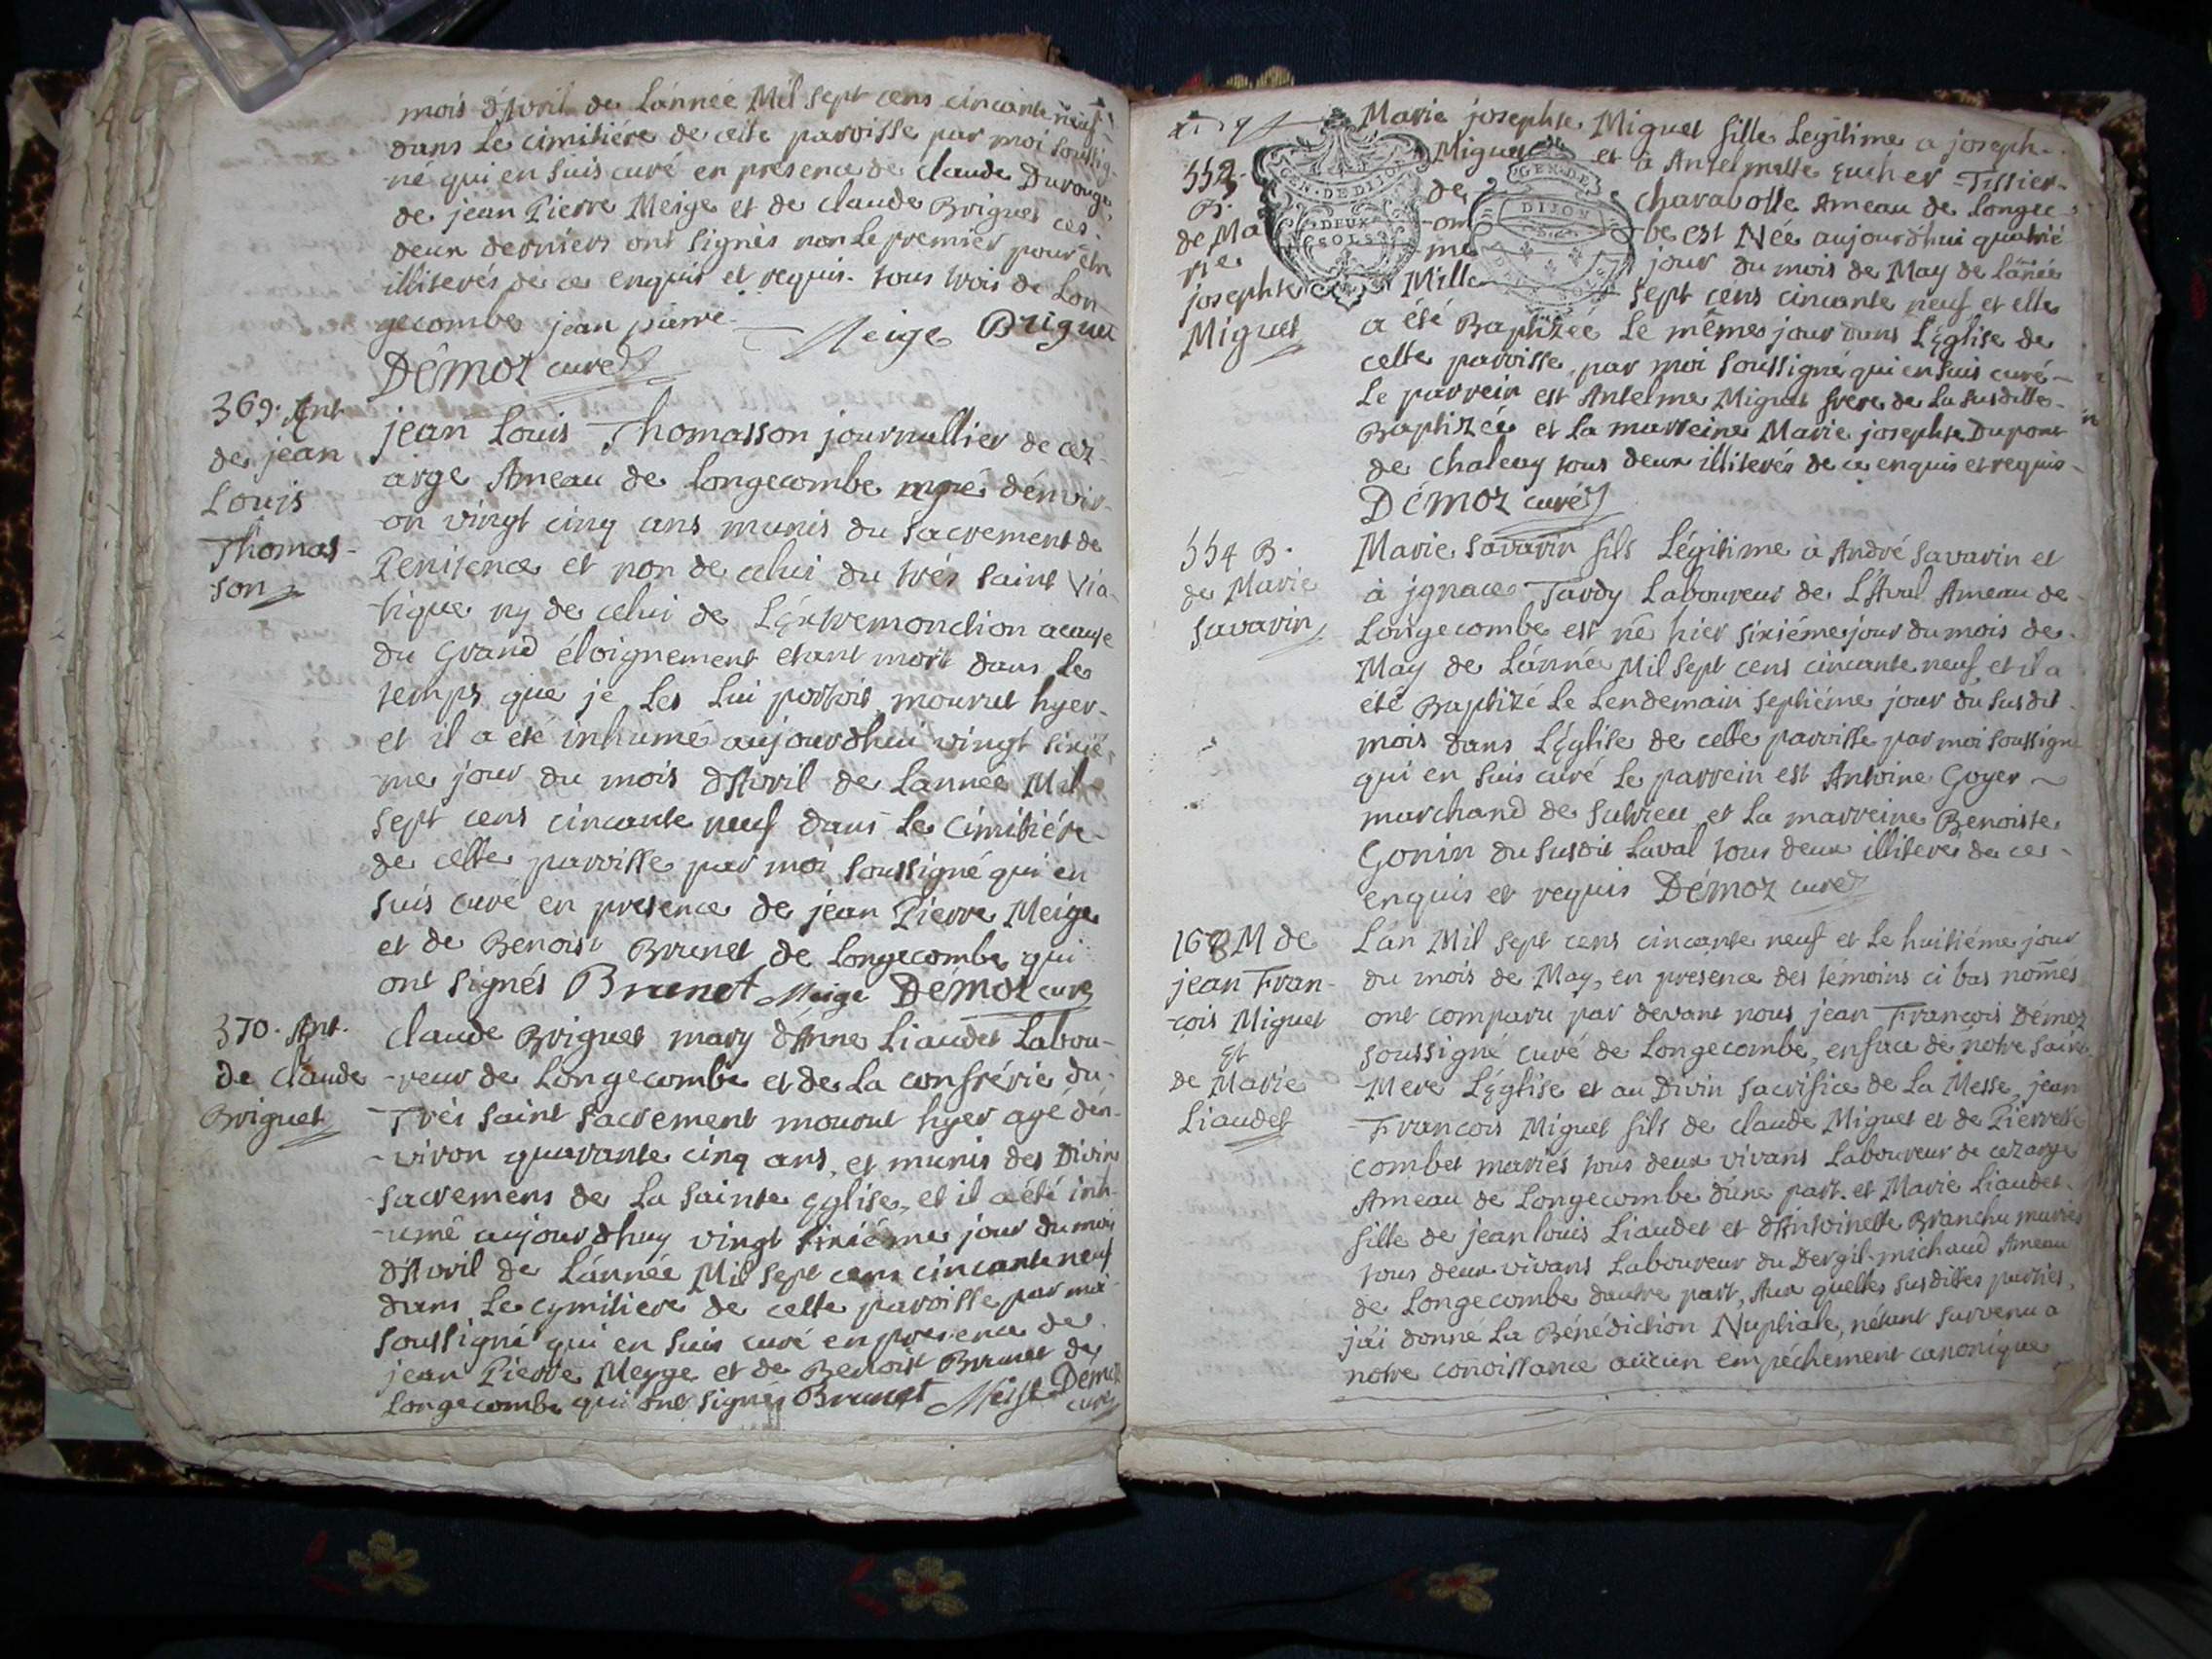 mois d'Avril de L'année Mil sept cens cincante neuf
dans Le cimitiére de cette paroisse par moi soussig-
-né qui en suis curé en presence de claude Durouge
de jean Pierre Meige et de claude Briguet ces
deux derniers ont signés non Le premier pour être
illiterés de ce enquis et requis. tous trois de Lon
gecombe jean pierre Meige Briguet
Démoz curé
369. Ant
de jean
Louis
Thomas-
son
jean Louis Thomasson journallier de cez-
arge Ameau de Longecombe agé d'envir-
on vingt cinq ans munis du sacrement de
Penitence et non de celui du trés saint via-
tique ny de celui de L'Extremonction acause
du Grand éloignement etant mort dans Le
temps que je Les Lui portois mourut hyer-
et il a été inhumé aujourdhui vingt sixié-
me jour du mois d'Avril de Lannée Mil
sept cens cincante neuf dans Le Cimitiére-
de cette paroisse par moi soussigné qui en
suis curé en presence de jean Pierre Meige
et de Benoist Brunet de Longecombe qui
ont signés Brunet Meige Démoz curé
370. Ant.
de Claude
Briguet
Claude Briguet mary d'Anne Liaudet Labou-
-reur de Longecombe et de La confrérie du
Trés saint sacrement mourut hyer agé d'en-
-viron quarante cinq ans, et munis des Divins
sacremens de La sainte Eglise, et il a été inh-
-umé aujourdhuy vingt sixiéme jour du mois
d'Avril de L'année Mil sept cens cincante neuf
dans Le cymitiere de cette paroisse par moi
soussigné qui en suis curé en presence de
jean Pierre Meyge et de Benoist Brunet de
Longecombe qui ont signés Brunet Meige Démoz
curé
552.
B.
de Ma
rie
josephte
Miguet
Marie josephte Miguet fille Legitime a joseph-
Miguet et a Antelmette Eucher Tissier-
de charabotte Ameau de Longe-
-om be est Née aujourdhui quatrié
me jour du mois de May de Lanée
Mille sept cens cincante neuf et elle
GEN. DE DIJON
DEUX
SOLS
GEN. DE
DIJON
a été Baptizée Le même jour dans L'Eglise de
cette paroisse, par moi soussigné qui en suis curé-
Le parrein est Antelme Miguet frere de La susditte-
Baptizée et La marreine Marie josephte Dupont
de Chaley tous deux illiterés de ce enquis et requis-
Démoz curé
554 B.
de Marie
Savarin
Marie Savarin fils Légitime à André Savarin et
à jgnace Tardy Laboureur de L'Aval Ameau de
Longecombe est né hier sixiéme jour du mois de-
May de L'année Mil sept cens cincante neuf et il a
été Baptizé Le Lendemain septiéme jour du susdit
mois dans L'Eglise de cette paroisse par moi soussigné
qui en suis curé Le parrein est Antoine Goyer
marchand de Sutrieu et La marreine Benoiste
Gonin du susdit Laval tous deux illiteres de ces-
enquis et requis Démoz curé
168 M de
jean Fran-
cois Miguet
Et
de Marie
Liaudet
L'an Mil sept cens cincante neuf et Le huitiéme jour
du mois de May, en presence des témoins ci bas només
ont comparu par devant nous jean Francois Démoz
soussigné curé de Longecombe, en face de notre sainte
-Mere L'Eglise et au Divin sacrifice de La Messe, jean
-Francois Miguet fils de claude Miguet et de Pierrette
combet mariés tous deux vivans Laboureur de cezarge
Ameau de Longecombe d'une part. et Marie Liaudet-
fille de jean louis Liaudet et d'Antoinette Branchu mariés
tous deux vivans Laboureur du Dergil-michaud Ameau
de Longecombe dautre part, Aux quelles susdittes parties,
j'ai donné La Bénédiction Nuptiale, n'étant survenu a
notre conoissance aucun empéchement canonique